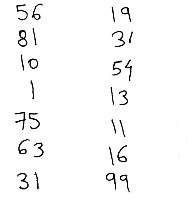 56 19
81 31
10 54
1 13
75 11
63 16
31 99